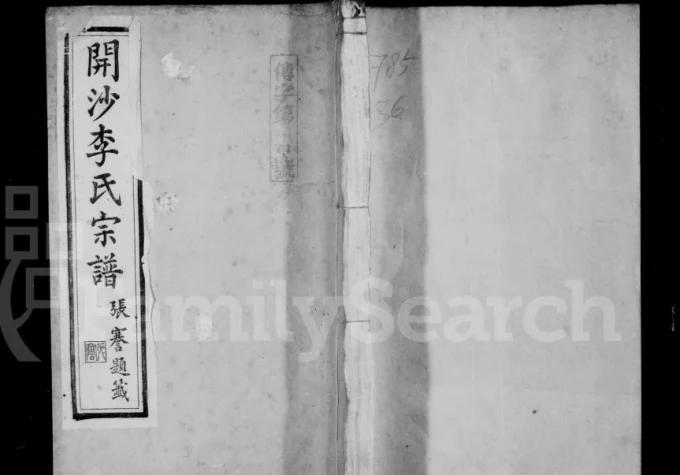 開沙李氏宗譜
張謇題籤
傳字第 號
785
36
FamilySearch